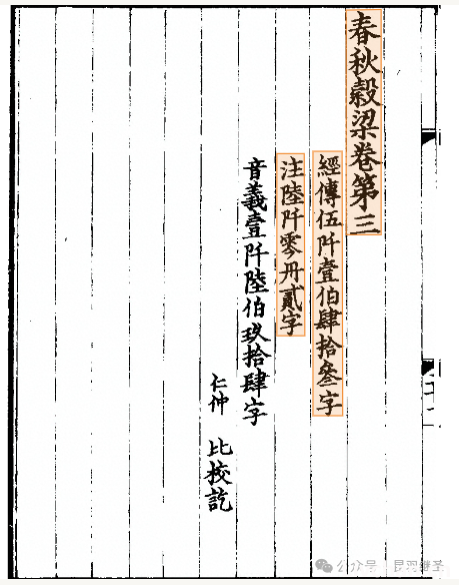 春秋穀梁卷第三
經傳伍阡壹伯肆拾叄字
注陸阡零卅貳字
音義壹阡陸伯玖拾肆字
仁仲 比校訖
公众号